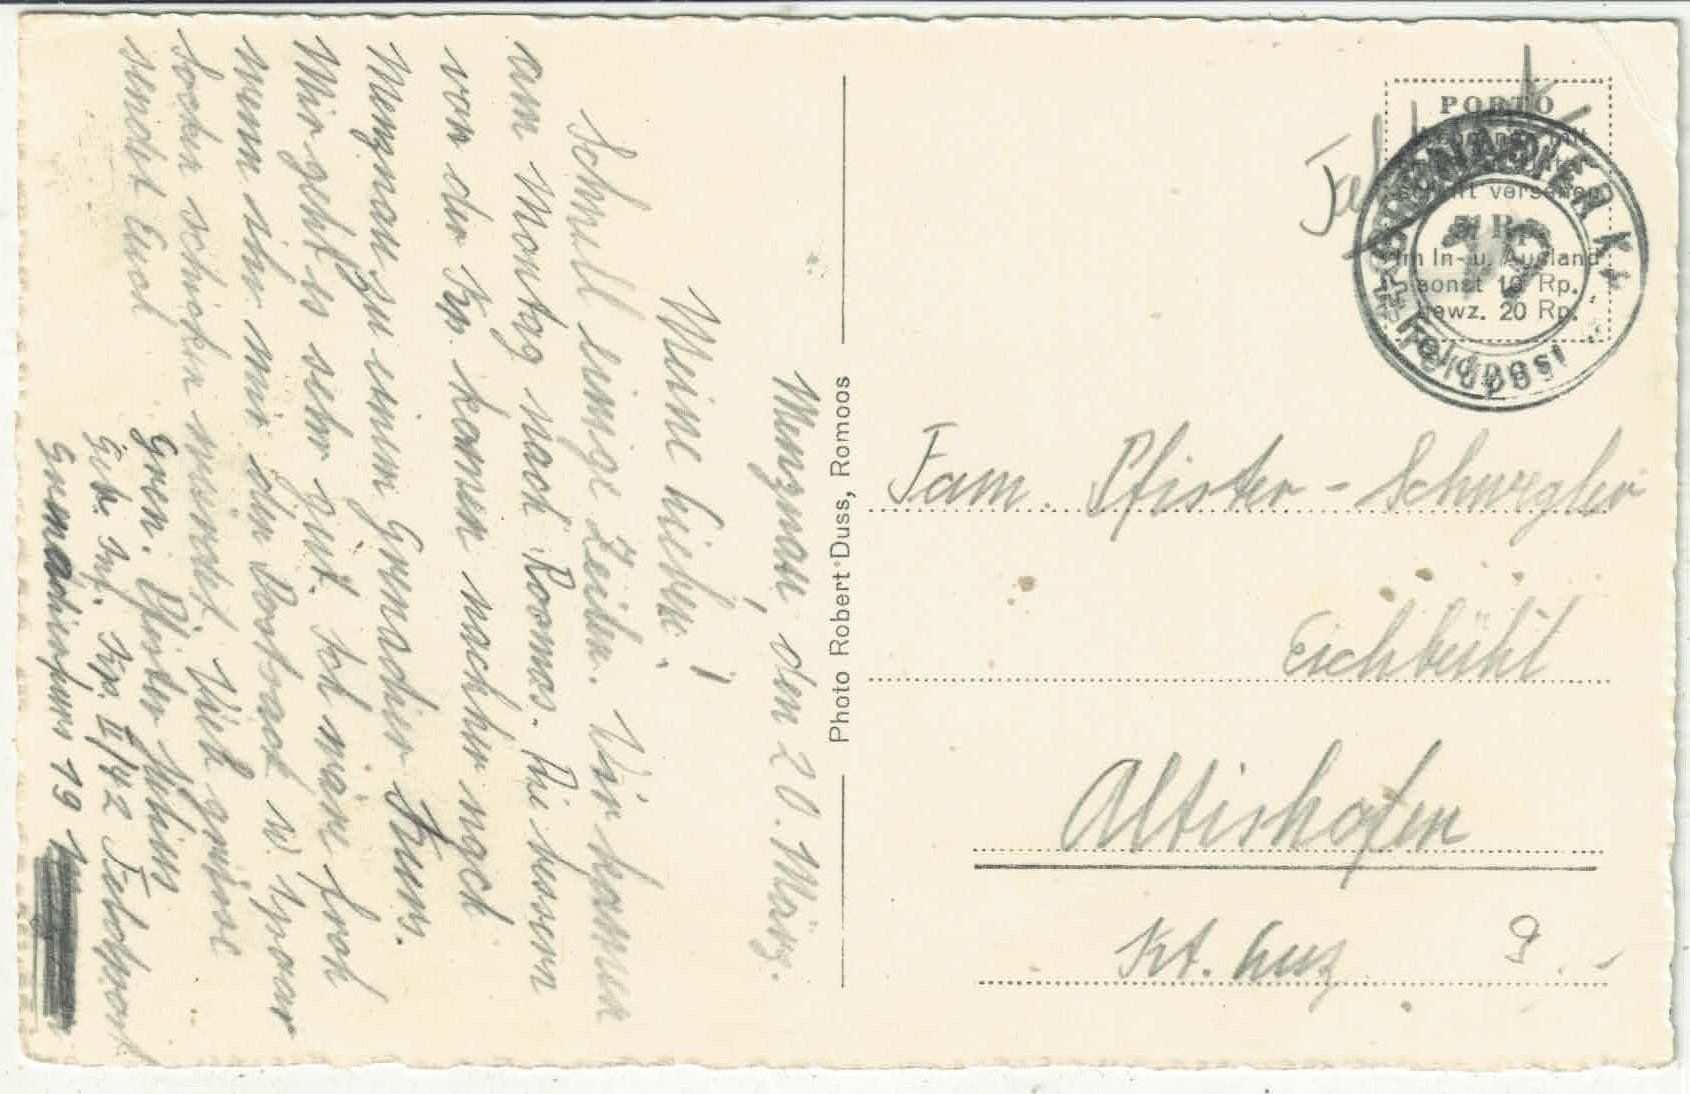 Menznau, den 20. März.
Meine Lieben!
Schnell einige Zeilen. Wir kamen
am Montag nach Romoos. Die besseren
von der Kp. komen nachher nach
Menznau zu einem Grenadier Kurs.
Mir geht es sehr gut. Ich wäre froh
wenn ihr mir den Postsack w. ein paar
Socken schicken würdet. Viele grüsse
sendet Euch
Gren. Pfister
Geb. Inf. Kp. II/42 Feldpost
Grenadierkurs 19
Photo Robert Duss, Romoos
PORTO
5 Rp.
im In- u. Ausland
sonst 10 Rp.
bewz. 20 Rp.
GRENADIER KURS
19
Feldpost
Fam. Pfister-Schwegler
Eichbühl
Altishofen
Kt. Luz.